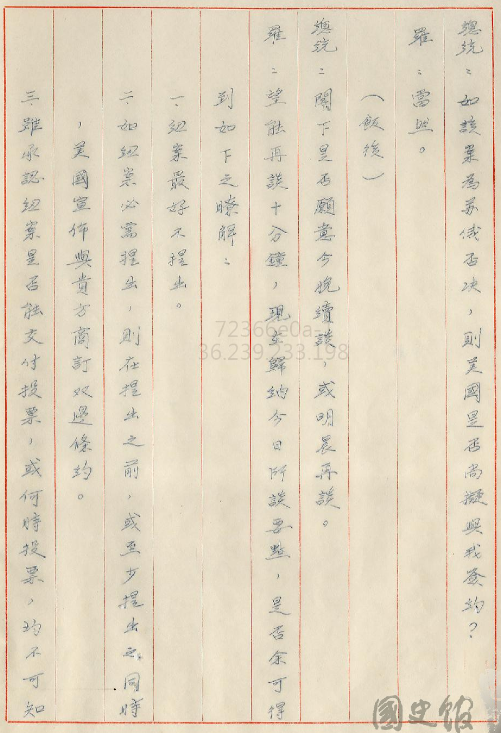 總統：如該案為蘇俄否決，則美國是否尚擬與我簽約？
羅：當然。
（飯後）
總統：閣下是否願意今晚續談，或明晨再談。
羅：望能再談十分鐘，現在歸納今日所談要點，是否余可得
到如下之瞭解：
一、紐案最好不提出。
二、如紐案必需提出，則在提出之前，或至少提出之同時
，美國宣佈與貴方商訂双邊條約。
三、雖承認紐案是否能交付投票，或何時投票，均不可知
72366e0a-
36.239.233.198
國史館